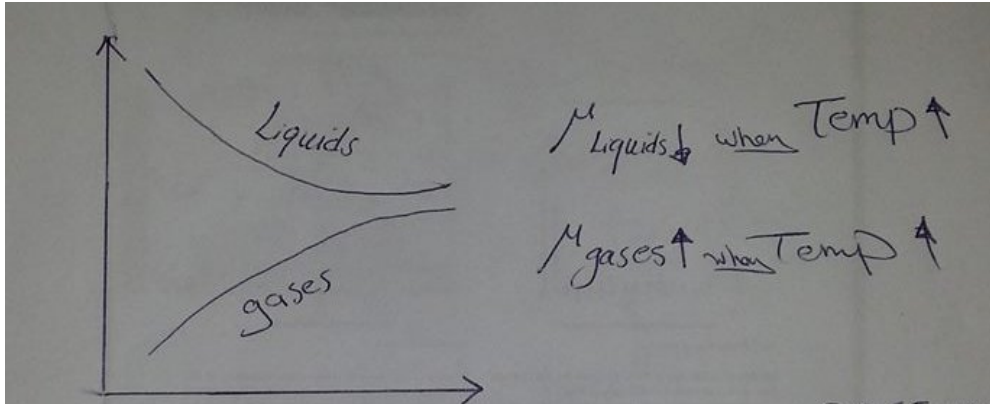 Liquids
gases
μ Liquids↓ when Temp ↑
μ gases ↑ when Temp ↑